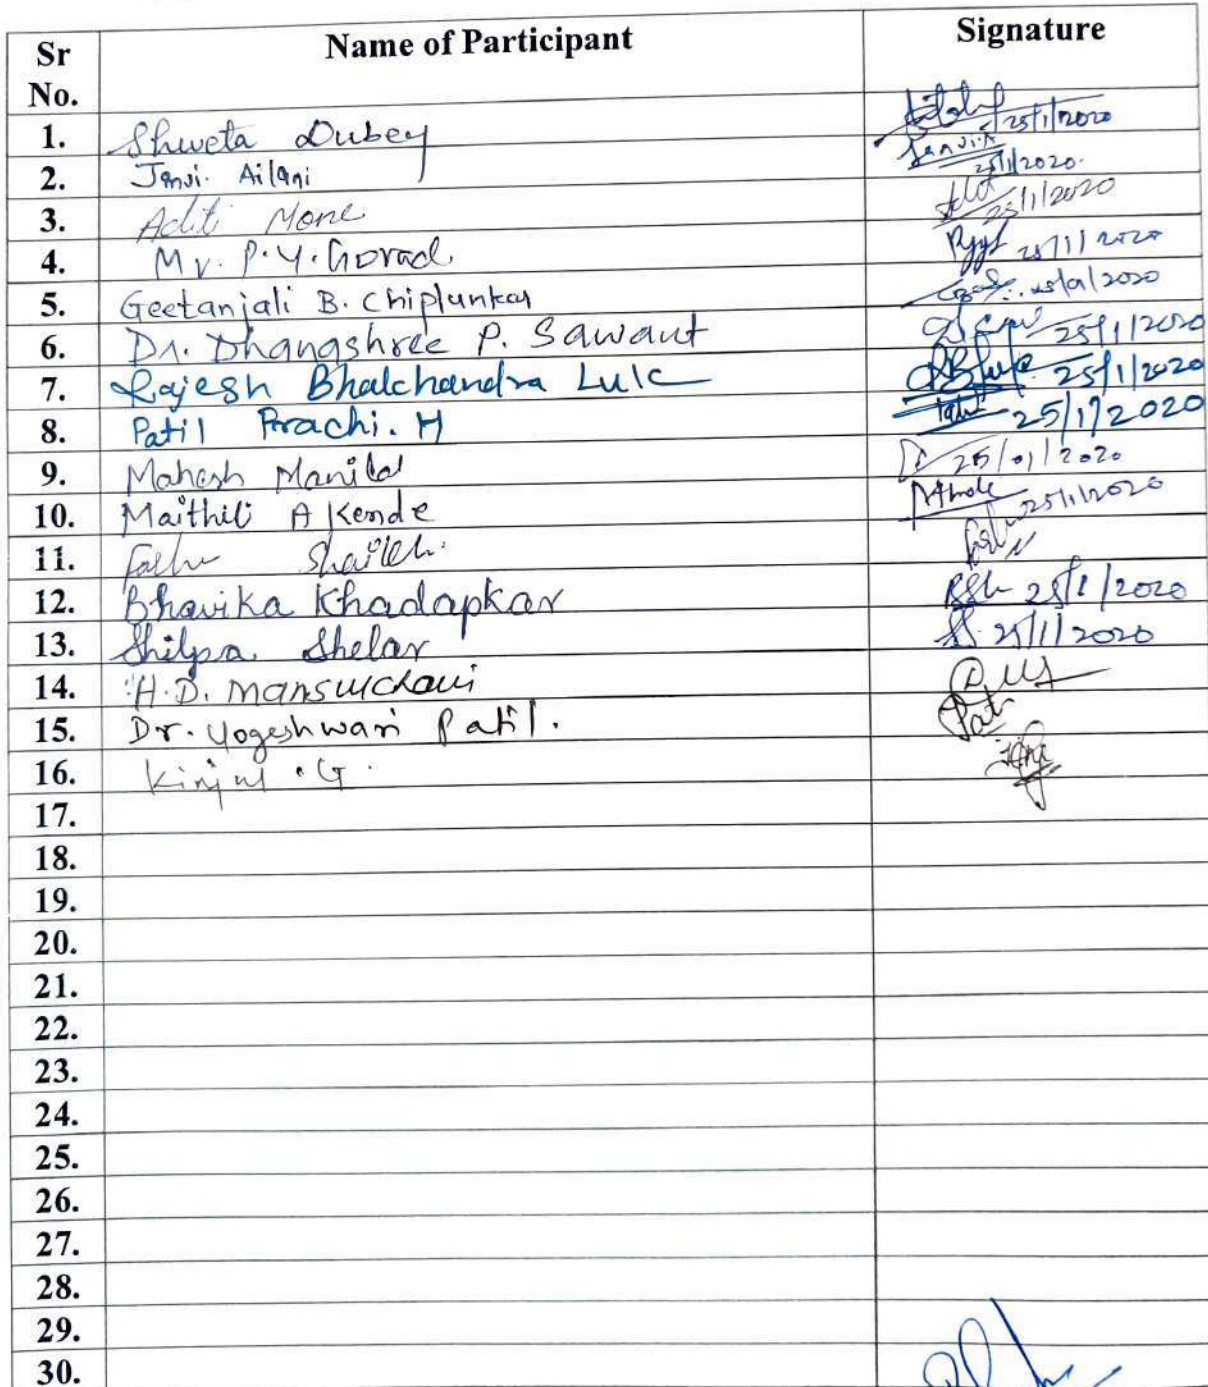 Sr No. Name of Participant Signature
1. Shweta Dubey 25/1/2020
2. Janvi. Ailani Janvi.A 25/1/2020.
3. Aditi Mone 25/1/2020
4. Mr. P. Y. Gorad 25/1/2020
5. Geetanjali B. Chiplunkar 25/01/2020
6. Dr. Dhanashree P. Sawant 25/1/2020
7. Rajesh Bhalchandra Lule 25/1/2020
8. Patil Prachi. H 25/1/2020
9. Mahesh Manilal 25/01/2020
10. Maithili A Kende 25/1/2020
11. Shaikh.
12. Bhavika Khadapkar 25/1/2020
13. Shilpa Shelar 25/1/2020
14. H.D. Mansukhani
15. Dr. Yogeshwari Patil.
16. Kinjal . G.
17.
18.
19.
20.
21.
22.
23.
24.
25.
26.
27.
28.
29.
30.